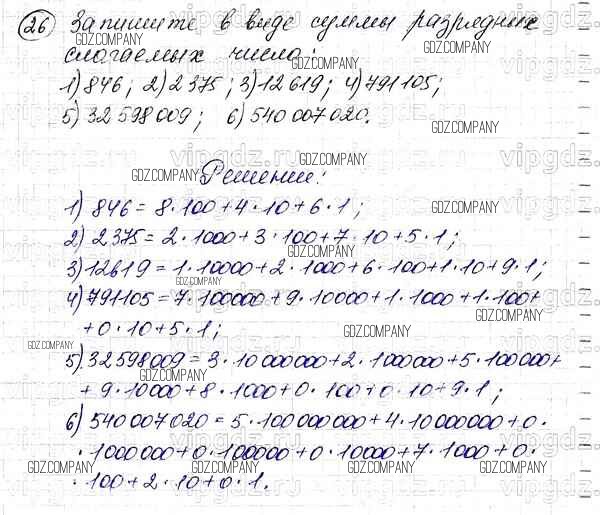 26 Запишите в виде суммы разрядных
слагаемых число:
1) 846; 2) 2 375; 3) 12 619; 4) 791 105;
5) 32 598 009; 6) 540 007 020.
Решение:
1) 846 = 8·100+4·10+6·1;
2) 2375 = 2·1000+3·100+7·10+5·1;
3) 12619 = 1·10000+2·1000+6·100+1·10+9·1;
4) 791105 = 7·100000+9·10000+1·1000+1·100+
+0·10+5·1;
5) 32598009 = 3·10000000+2·1000000+5·100000+
+9·10000+8·1000+0·100+0·10+9·1;
6) 540007020 = 5·100000000+4·10000000+0·
·1000000+0·100000+0·10000+7·1000+0·
·100+2·10+0·1.
vipgdz.ru
GDZ.COMPANY